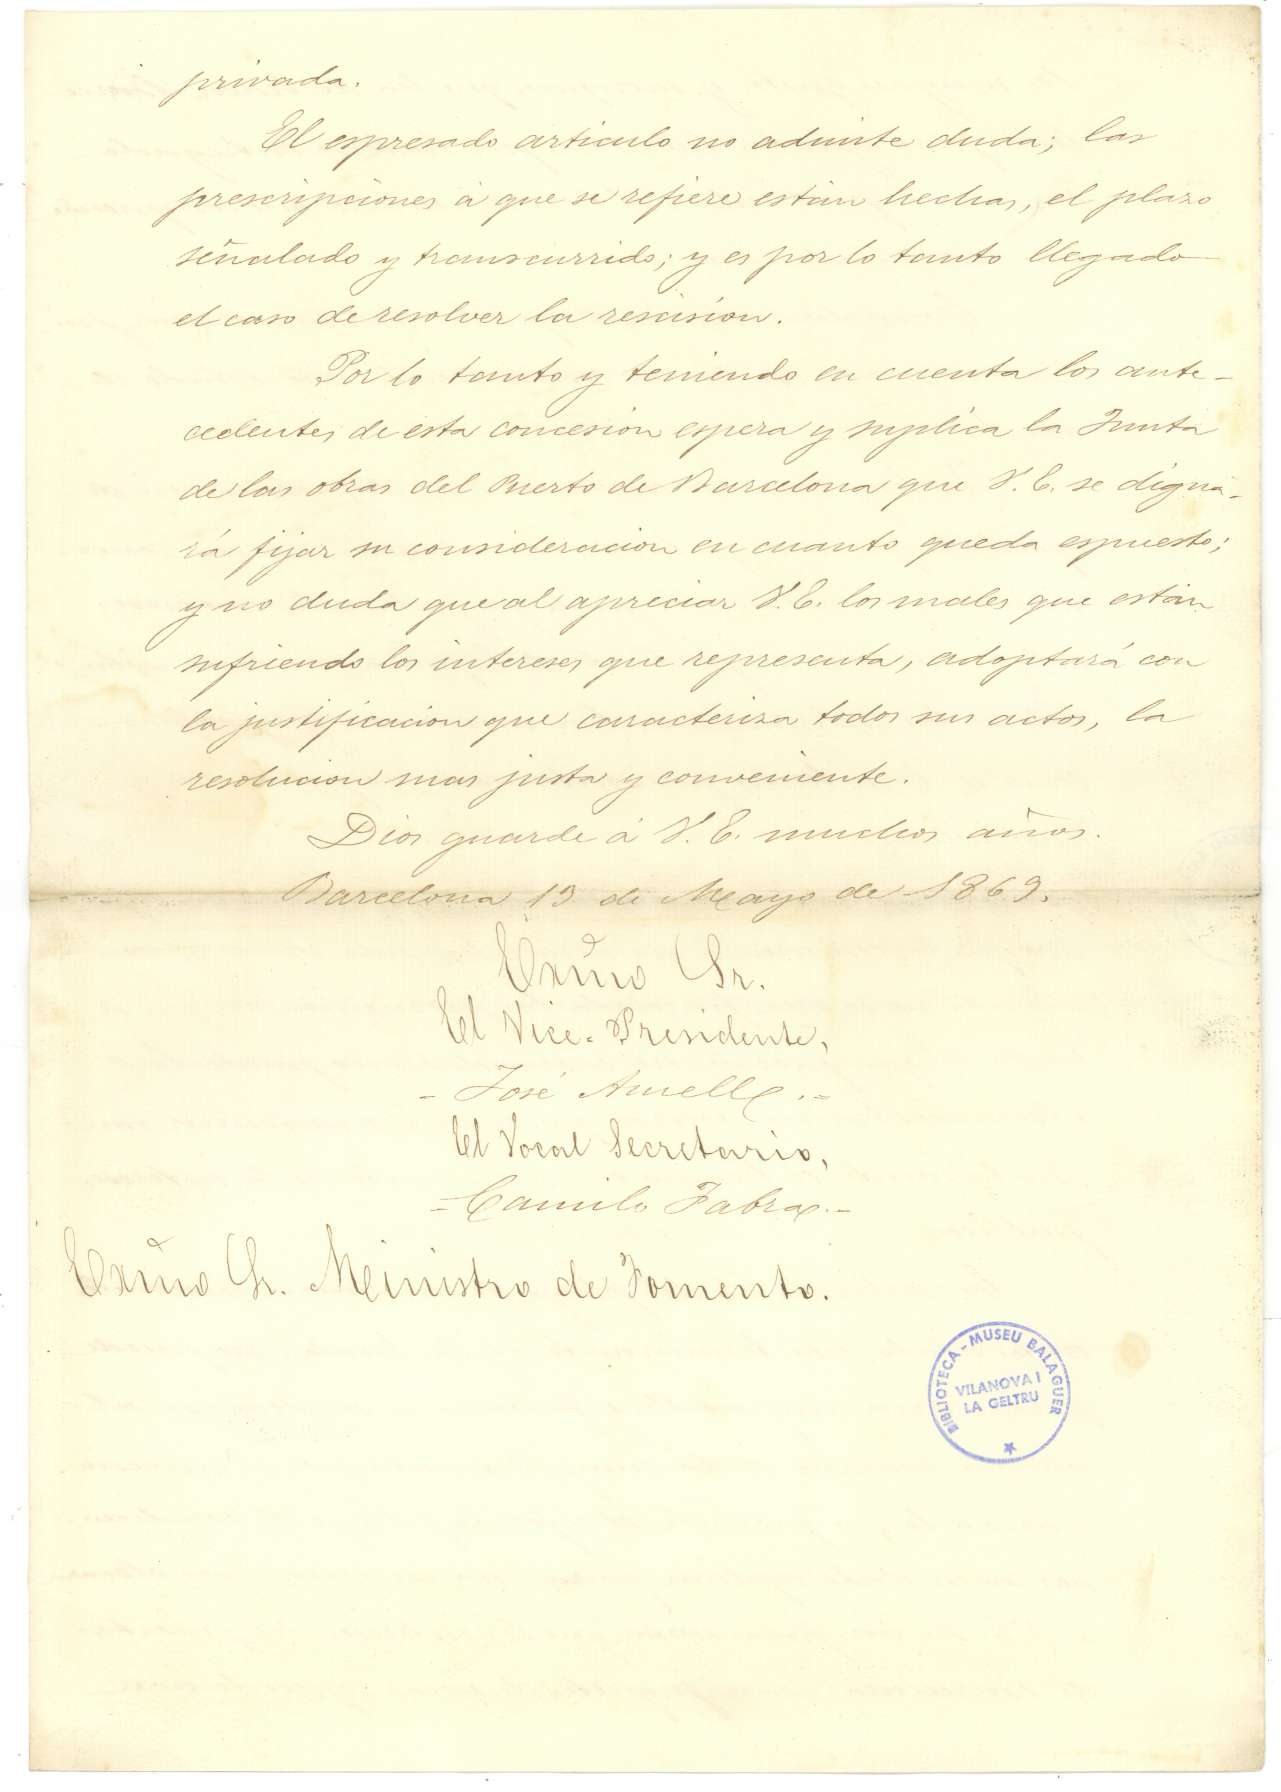 privada.
El espresado articulo no admite duda; las
prescripciones á que se refiere están hechas, el plazo
señalado y transcurrido; y es por lo tanto llegado
el caso de resolver la rescision.
Por lo tanto y teniendo en cuenta los ante-
cedentes de esta concesion espera y suplica la Junta
de las obras del Puerto de Barcelona que V. E. se digna-
rá fijar su consideracion en cuanto queda espuesto;
y no duda que al apreciar V. E. los males que están
sufriendo los intereses que representa, adoptará con
la justificacion que caracteriza todos sus actos, la
resolucion mas justa y conveniente.
Dios guarde á V. E. muchos años.
Barcelona 13 de Mayo de 1869.
Exmo Sr.
El Vice-Presidente,
- José Amell .-
El Vocal Secretario,
- Camilo Fabra .-
Exmo Sr. Ministro de Fomento.
BIBLIOTECA - MUSEU BALAGUER
VILANOVA I
LA GELTRU